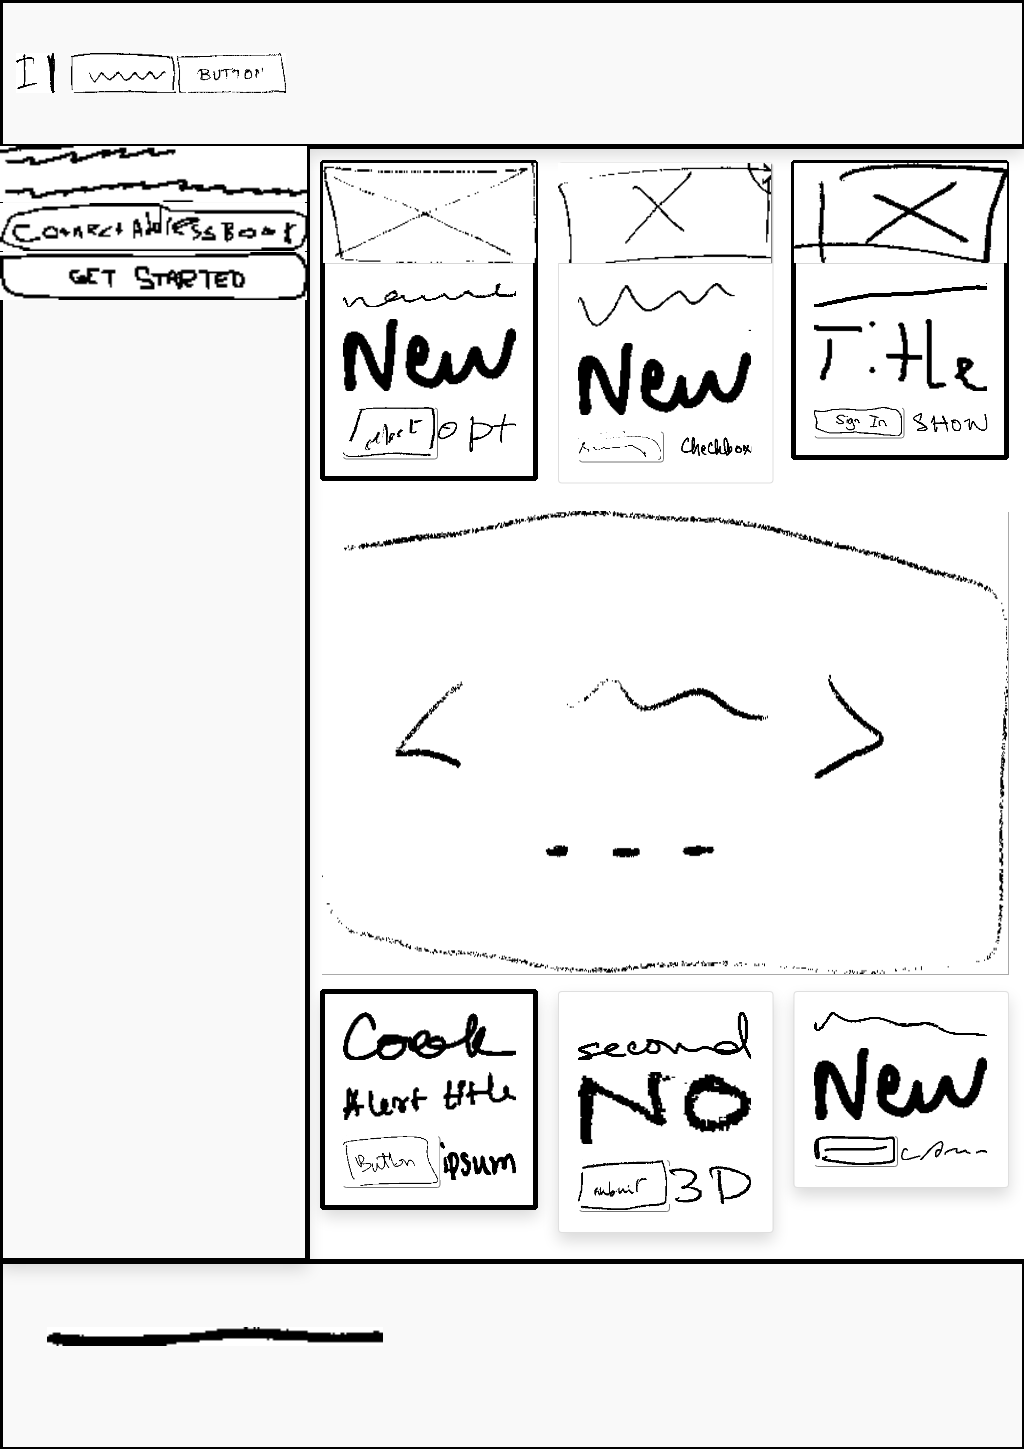 I
BUTTON
Connect Address Book
GET STARTED
name
New
opt
New
Checkbox
Title
Sign In
SHOW
Cook
Alert title
Button
ipsum
second
NO
submit
3D
New